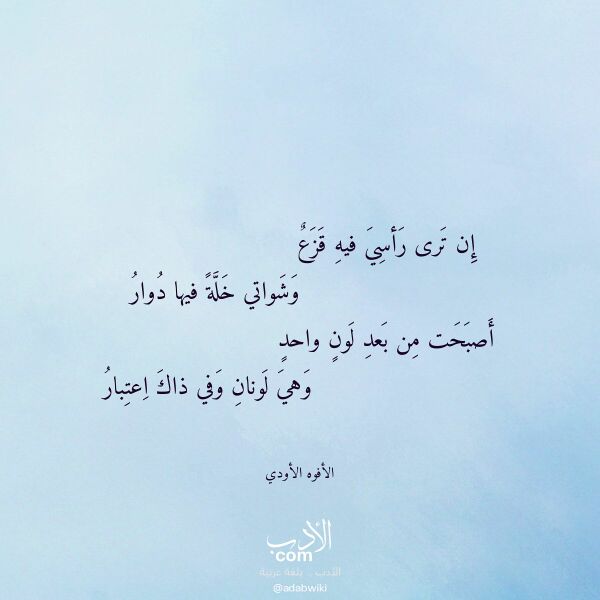 إِن تَرى رَأسِيَ فيهِ قَزَعٌ
وَشَواتي خَلَّةً فيها دُوارُ
أَصبَحَت مِن بَعدِ لَونٍ واحدٍ
وَهيَ لَونانِ وَفي ذاكَ اِعتِبارُ
الأفوه الأودي
الأدب
com
الأدب .. بلغة عربية
@adabwiki